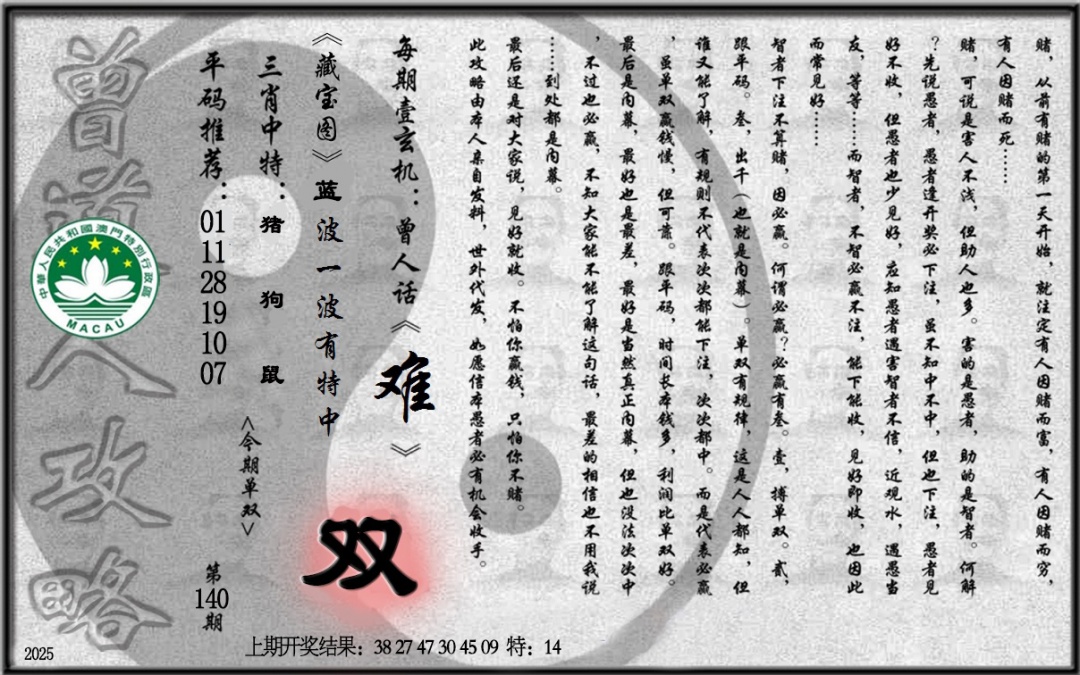 赌，从前有赌的第一天开始，就注定有人因赌而富，有人因赌而穷，
有人因赌而死……
赌，可说是害人不浅，但助人也多。害的是愚者，助的是智者。何解
？先说愚者，愚者逢开奖必下注，虽不知中不中，但也下注，愚者见
好不收，但愚者也少见好，应知愚者遇害智者不信，近观水，遇愚当
友，等等……而智者，不智必赢不注，能下能收，见好即收，也因此
而常见好……
智者下注不算赌，因必赢。何谓必赢？必赢有叁。壹，搏单双。贰，
跟平码。叁，出千（也就是内幕）。单双有规律，这是人人都知，但
谁又能了解，有规则不代表次次都能下注，次次都中。而是代表必赢
，虽单双赢钱慢，但可靠。跟平码，时间长本钱多，利润比单双好。
最后是内幕，最好也是最差，最好是当然真正内幕，但也没法次次中
，不过也必赢，不知大家能不能了解这句话，最差的相信也不用我说
……到处都是内幕。
最后还是对大家说，见好就收。不怕你赢钱，只怕你不赌。
此攻略由本人亲自发料，世外代发，如愿信本愚者必有机会收手。
每期壹玄机：曾人话《难》
《藏宝图》蓝波一波有特中
双
三肖中特：猪 狗 鼠
<今期单双>
平码推荐：01 11 28 19 10 07
第140期
曾道人攻略
中華人民共和國澳門特別行政區
MACAU
2025
上期开奖结果：38 27 47 30 45 09 特：14